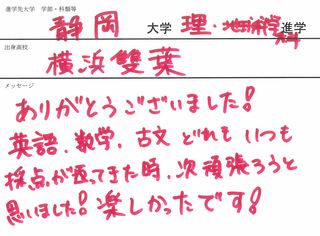 進学先大学 学部・科類等
静岡 大学 理・地球科学科 進学
出身高校
横浜雙葉
メッセージ
ありがとうございました!
英語、数学、古文 どれも いつも
採点が返ってきた時、次頑張ろうと
思いました!楽しかったです!